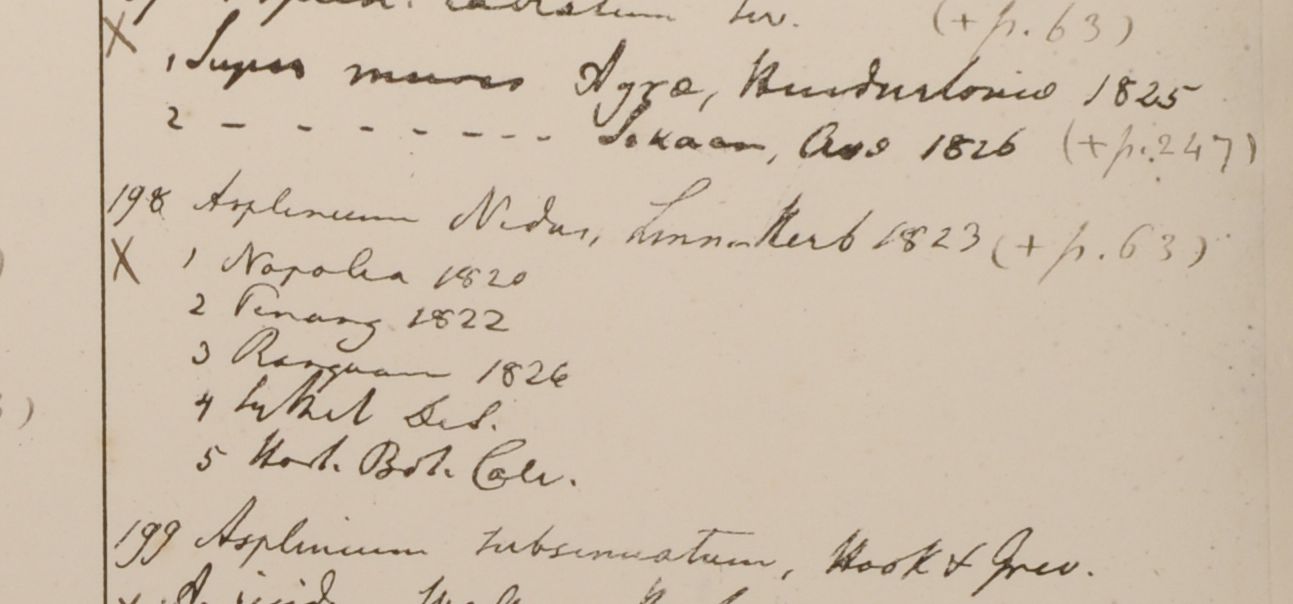 radiatum Sw. (+ p. 63)
X
1 Super muros Agra, Hindustoniae 1825
2 - - - - - - - - Sekaan, Ava 1826 (+ p. 247)
198 Asplenium Nidus, Linn. Herb 1823 (+ p. 63)
X 1 Napalia 1820
2 Penang 1822
3 Rangoan 1826
4 Sylhet DeS.
5 Hort. Bot. Calc.
199 Asplenium subsinuatum, Hook & Grev.